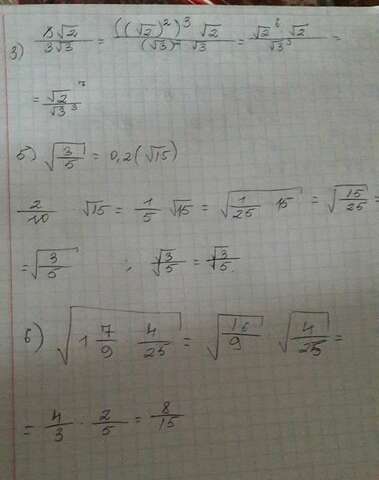 3) 8√2/3√3 = ((√2)²)³ √2/(√3)² √3 = √2⁶ √2/√3³ =
= √2⁷/√3³
5) √(3/5) = 0,2(√15)
2/10 √15 = 1/5 √15 = √(1/25 15) = √(15/25) =
= √(3/5) ; √3/5 = √3/5
6) √(1 7/9 4/25) = √(16/9) √(4/25) =
= 4/3 · 2/5 = 8/15